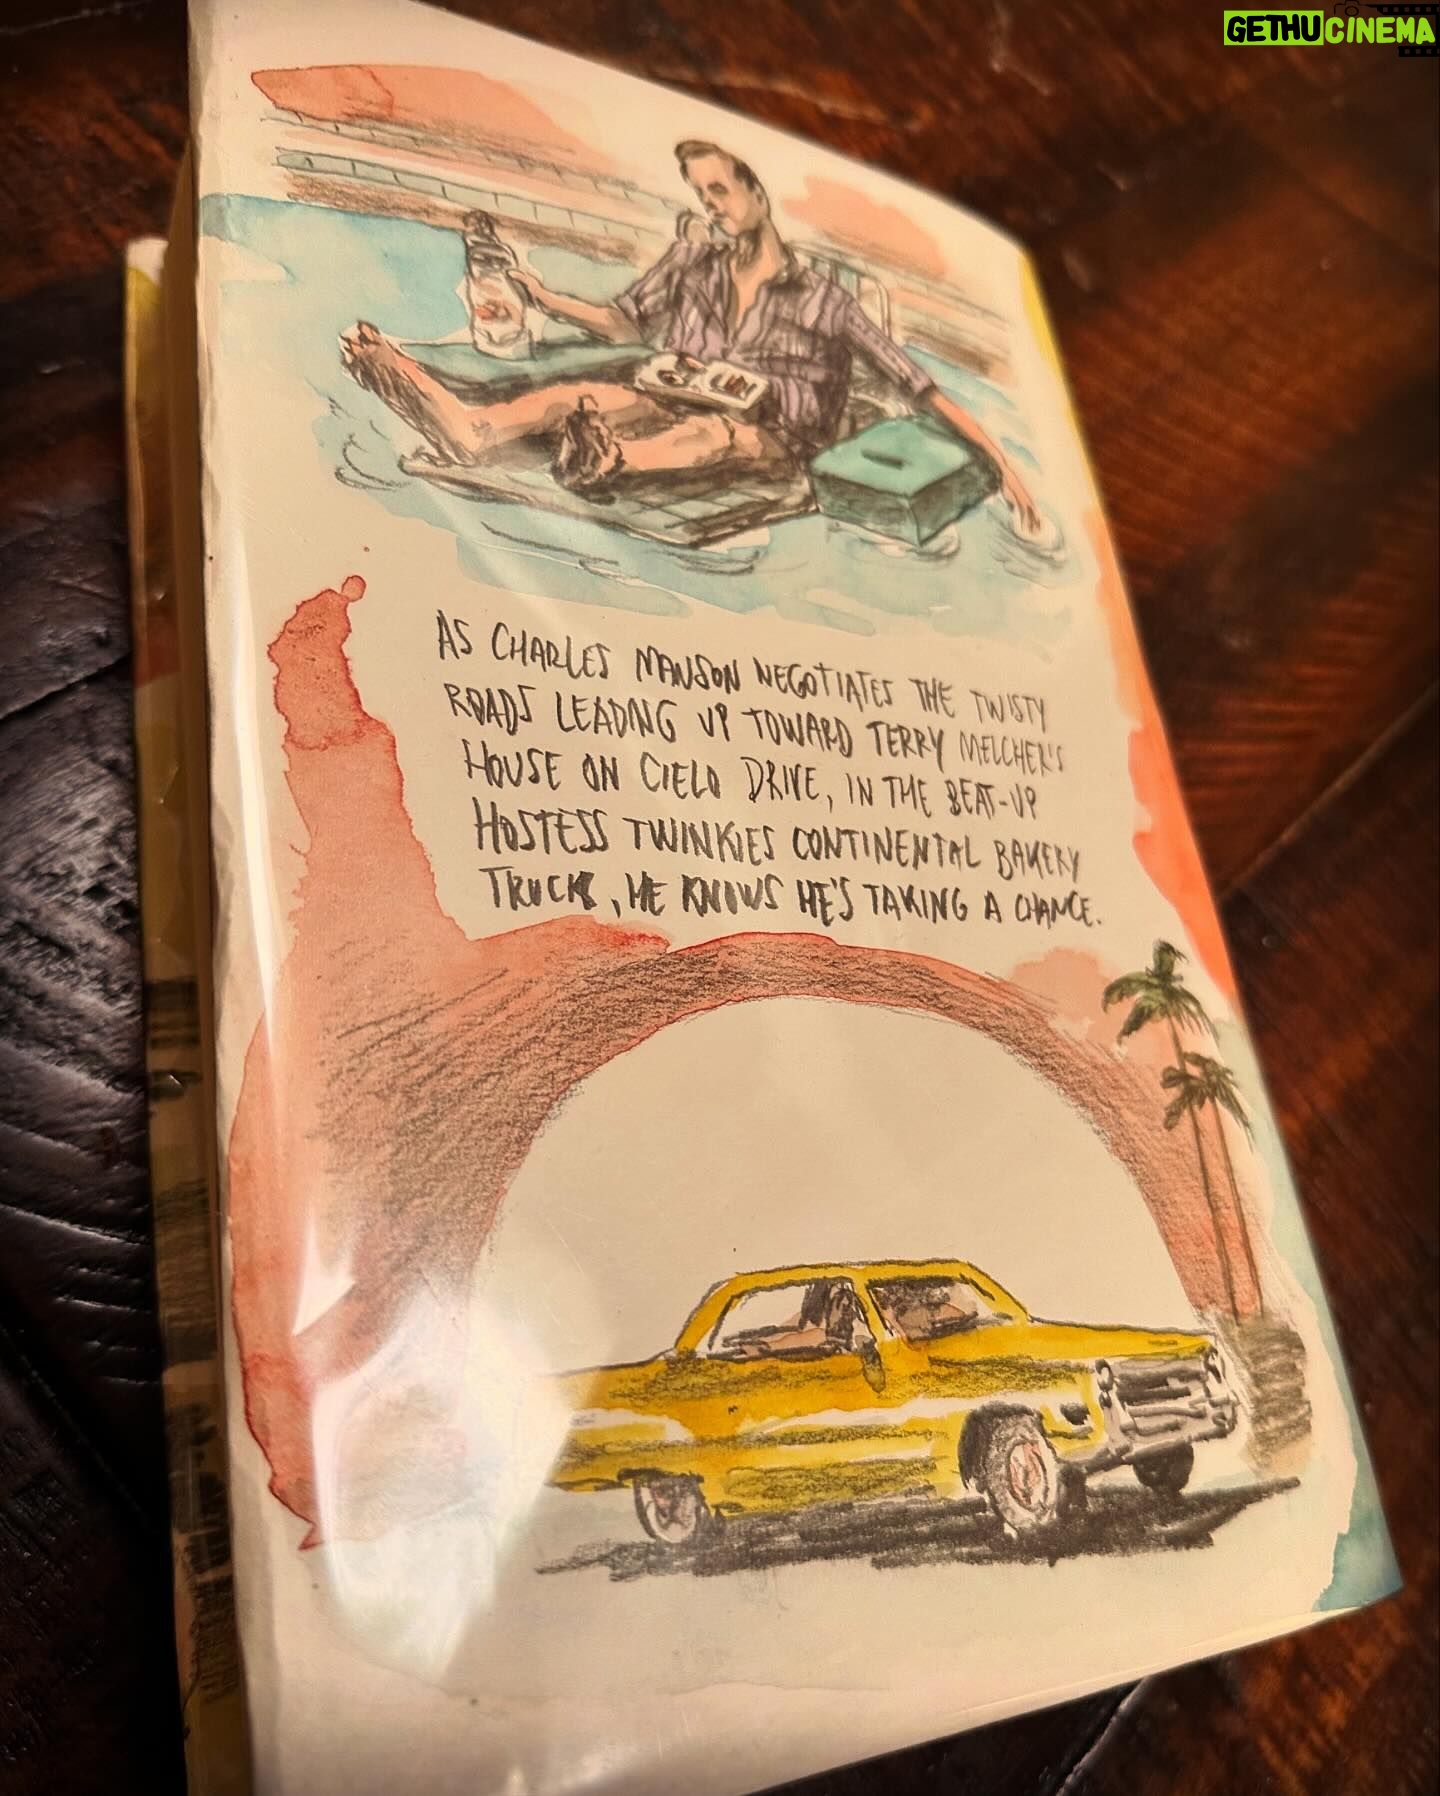 GETHUCINEMA
AS CHARLES MANSON NEGOTIATES THE TWISTY
ROADS LEADING UP TOWARD TERRY MELCHER'S
HOUSE ON CIELO DRIVE, IN THE BEAT-UP
HOSTESS TWINKIES CONTINENTAL BAKERY
TRUCK, HE KNOWS HE'S TAKING A CHANCE.